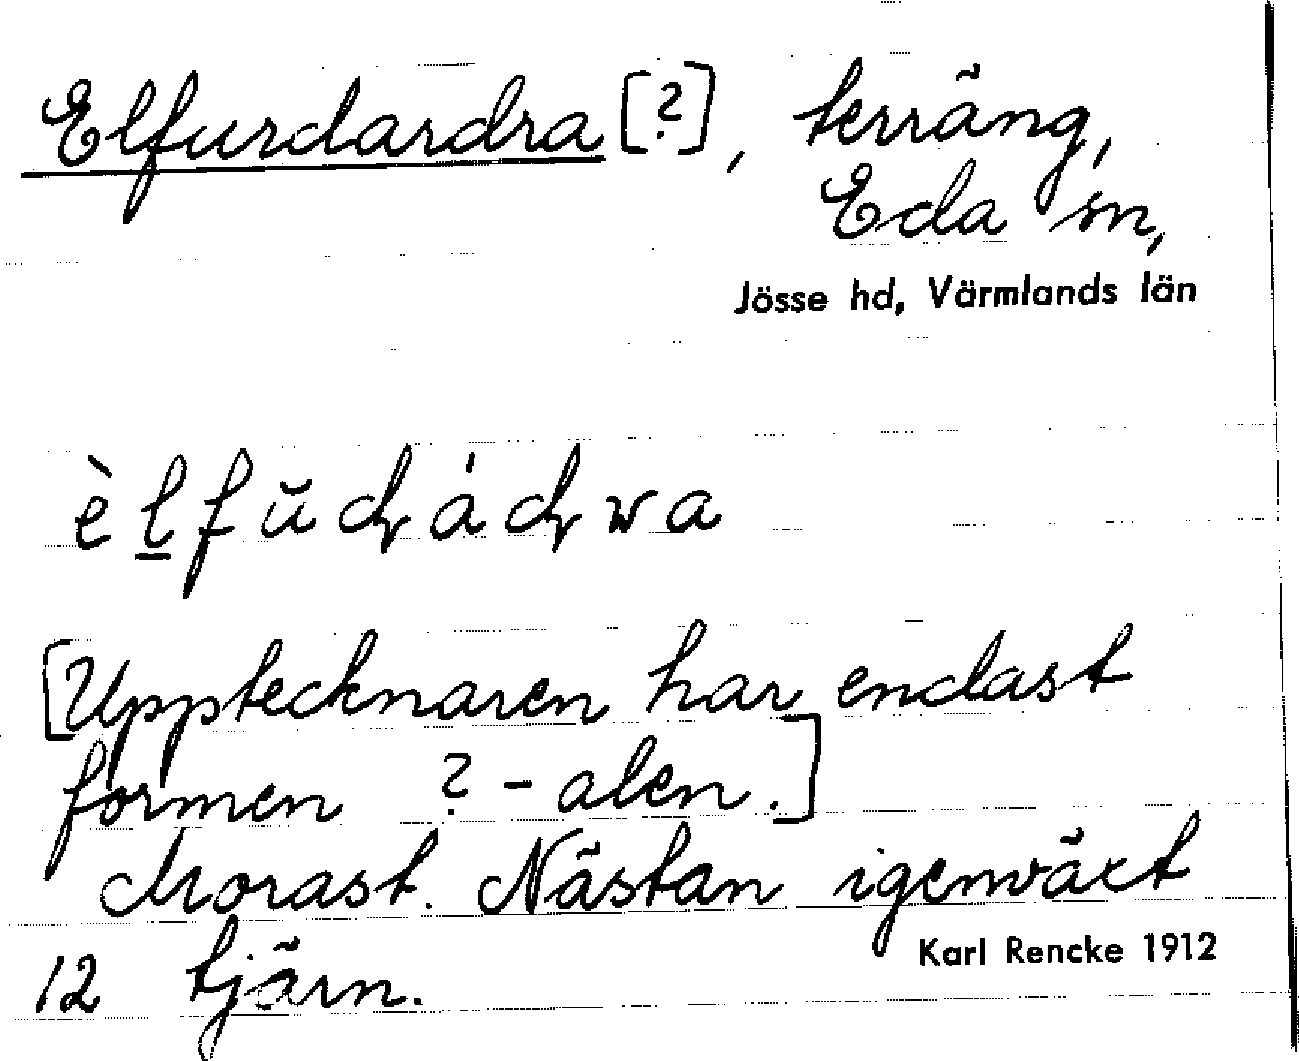 Elfurdardra [?], terräng,
Eda sn,
Jösse hd, Värmlands län
èl̲fŭɖáɖwa
[Upptecknaren har endast
formen ? - alen.]
Morast. Nästan igenväxt
12 tjärn.
Karl Rencke 1912